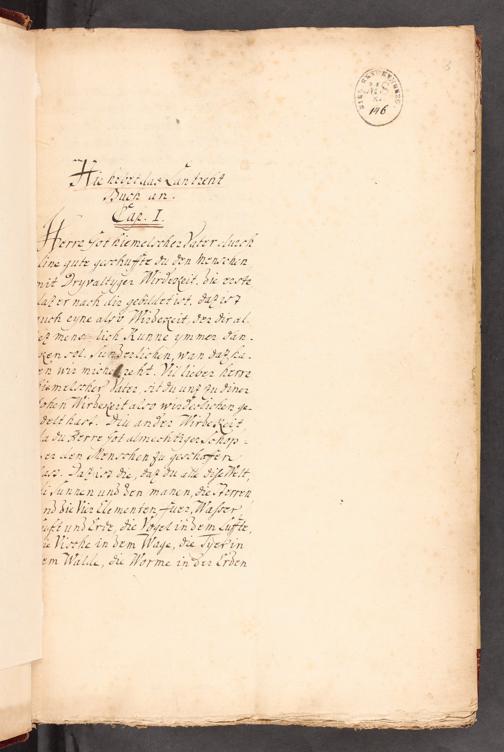 3
BIBL. RENDEKIENBERG.
MS
N.
146
Hie hebet daz Lantrent
Buch an.
Cap. I.
Herre Got hiemelscher Vater durch
dine gute geschuffte du den Menschen
mit Dryvaltyger Wirdekeit. die erste
daz er nach dir gebildet ist, daz ist
auch eyne also Wirdekeit, der dir al-
lez mensch lich Kunne ymmer dan-
ken sol. Sunderlichen, wan daz ha-
ren wir michel reht. Vil lieber herre
hiemelscher Vater sit du uns zu diner
hohen Wirdekeit also wirdeclichen ge-
delt hast. Diu ander Wirdekeit
da du Herre Got almechtiger schop-
fer den Menschen zu geschaffen
hast. Daz ist die, daz du alle dise Welt,
die Sunnen und den manen, die sterren
und die Vier Elementen fuer, Wasser
Luft und Erde, die Vogel in dem Lufte,
die Vische in dem Wage, die Tyer in
dem Walde, die Worme in der Erden